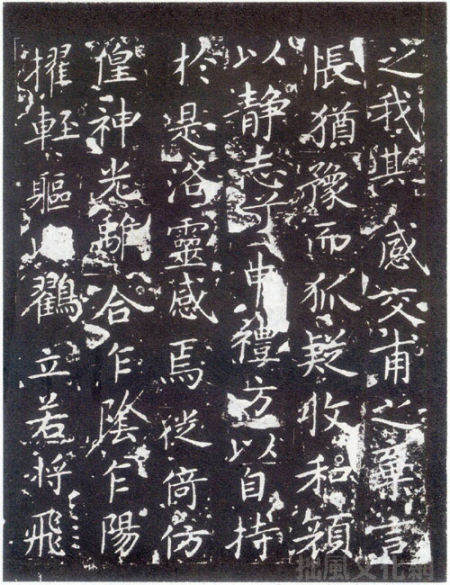 之我欺感交甫之棄言
悵猶豫而狐疑收和顏
以静志兮申禮方以自持
於是洛靈感焉徙倚仿
偟神光離合乍陰乍陽
擢輕軀以鸛立若将飛